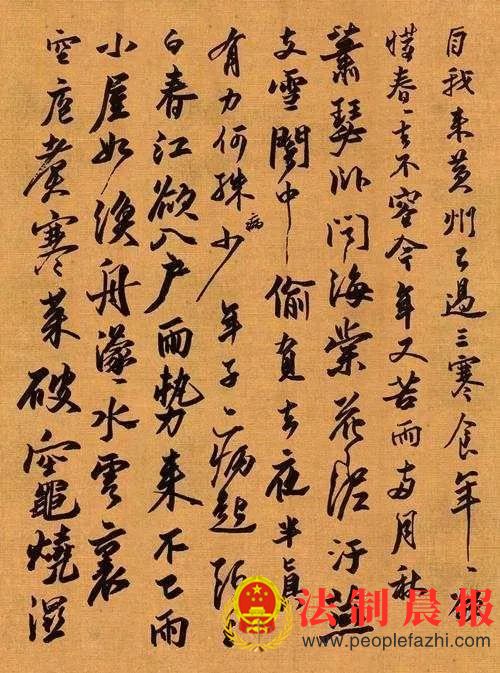 自我来黄州已過三寒食年ゝ欲
惜春ゝ去不容惜今年又苦雨兩月秋
蕭瑟卧聞海棠花泥汙燕
支雪闇中偷負去夜半真
有力何殊病少年子病起頭
白春江欲入户雨勢来不已雨
小屋如漁舟濛ゝ水雲裏
空庖煮寒菜破竈燒濕
法制晨报
www.peoplefazhi.com